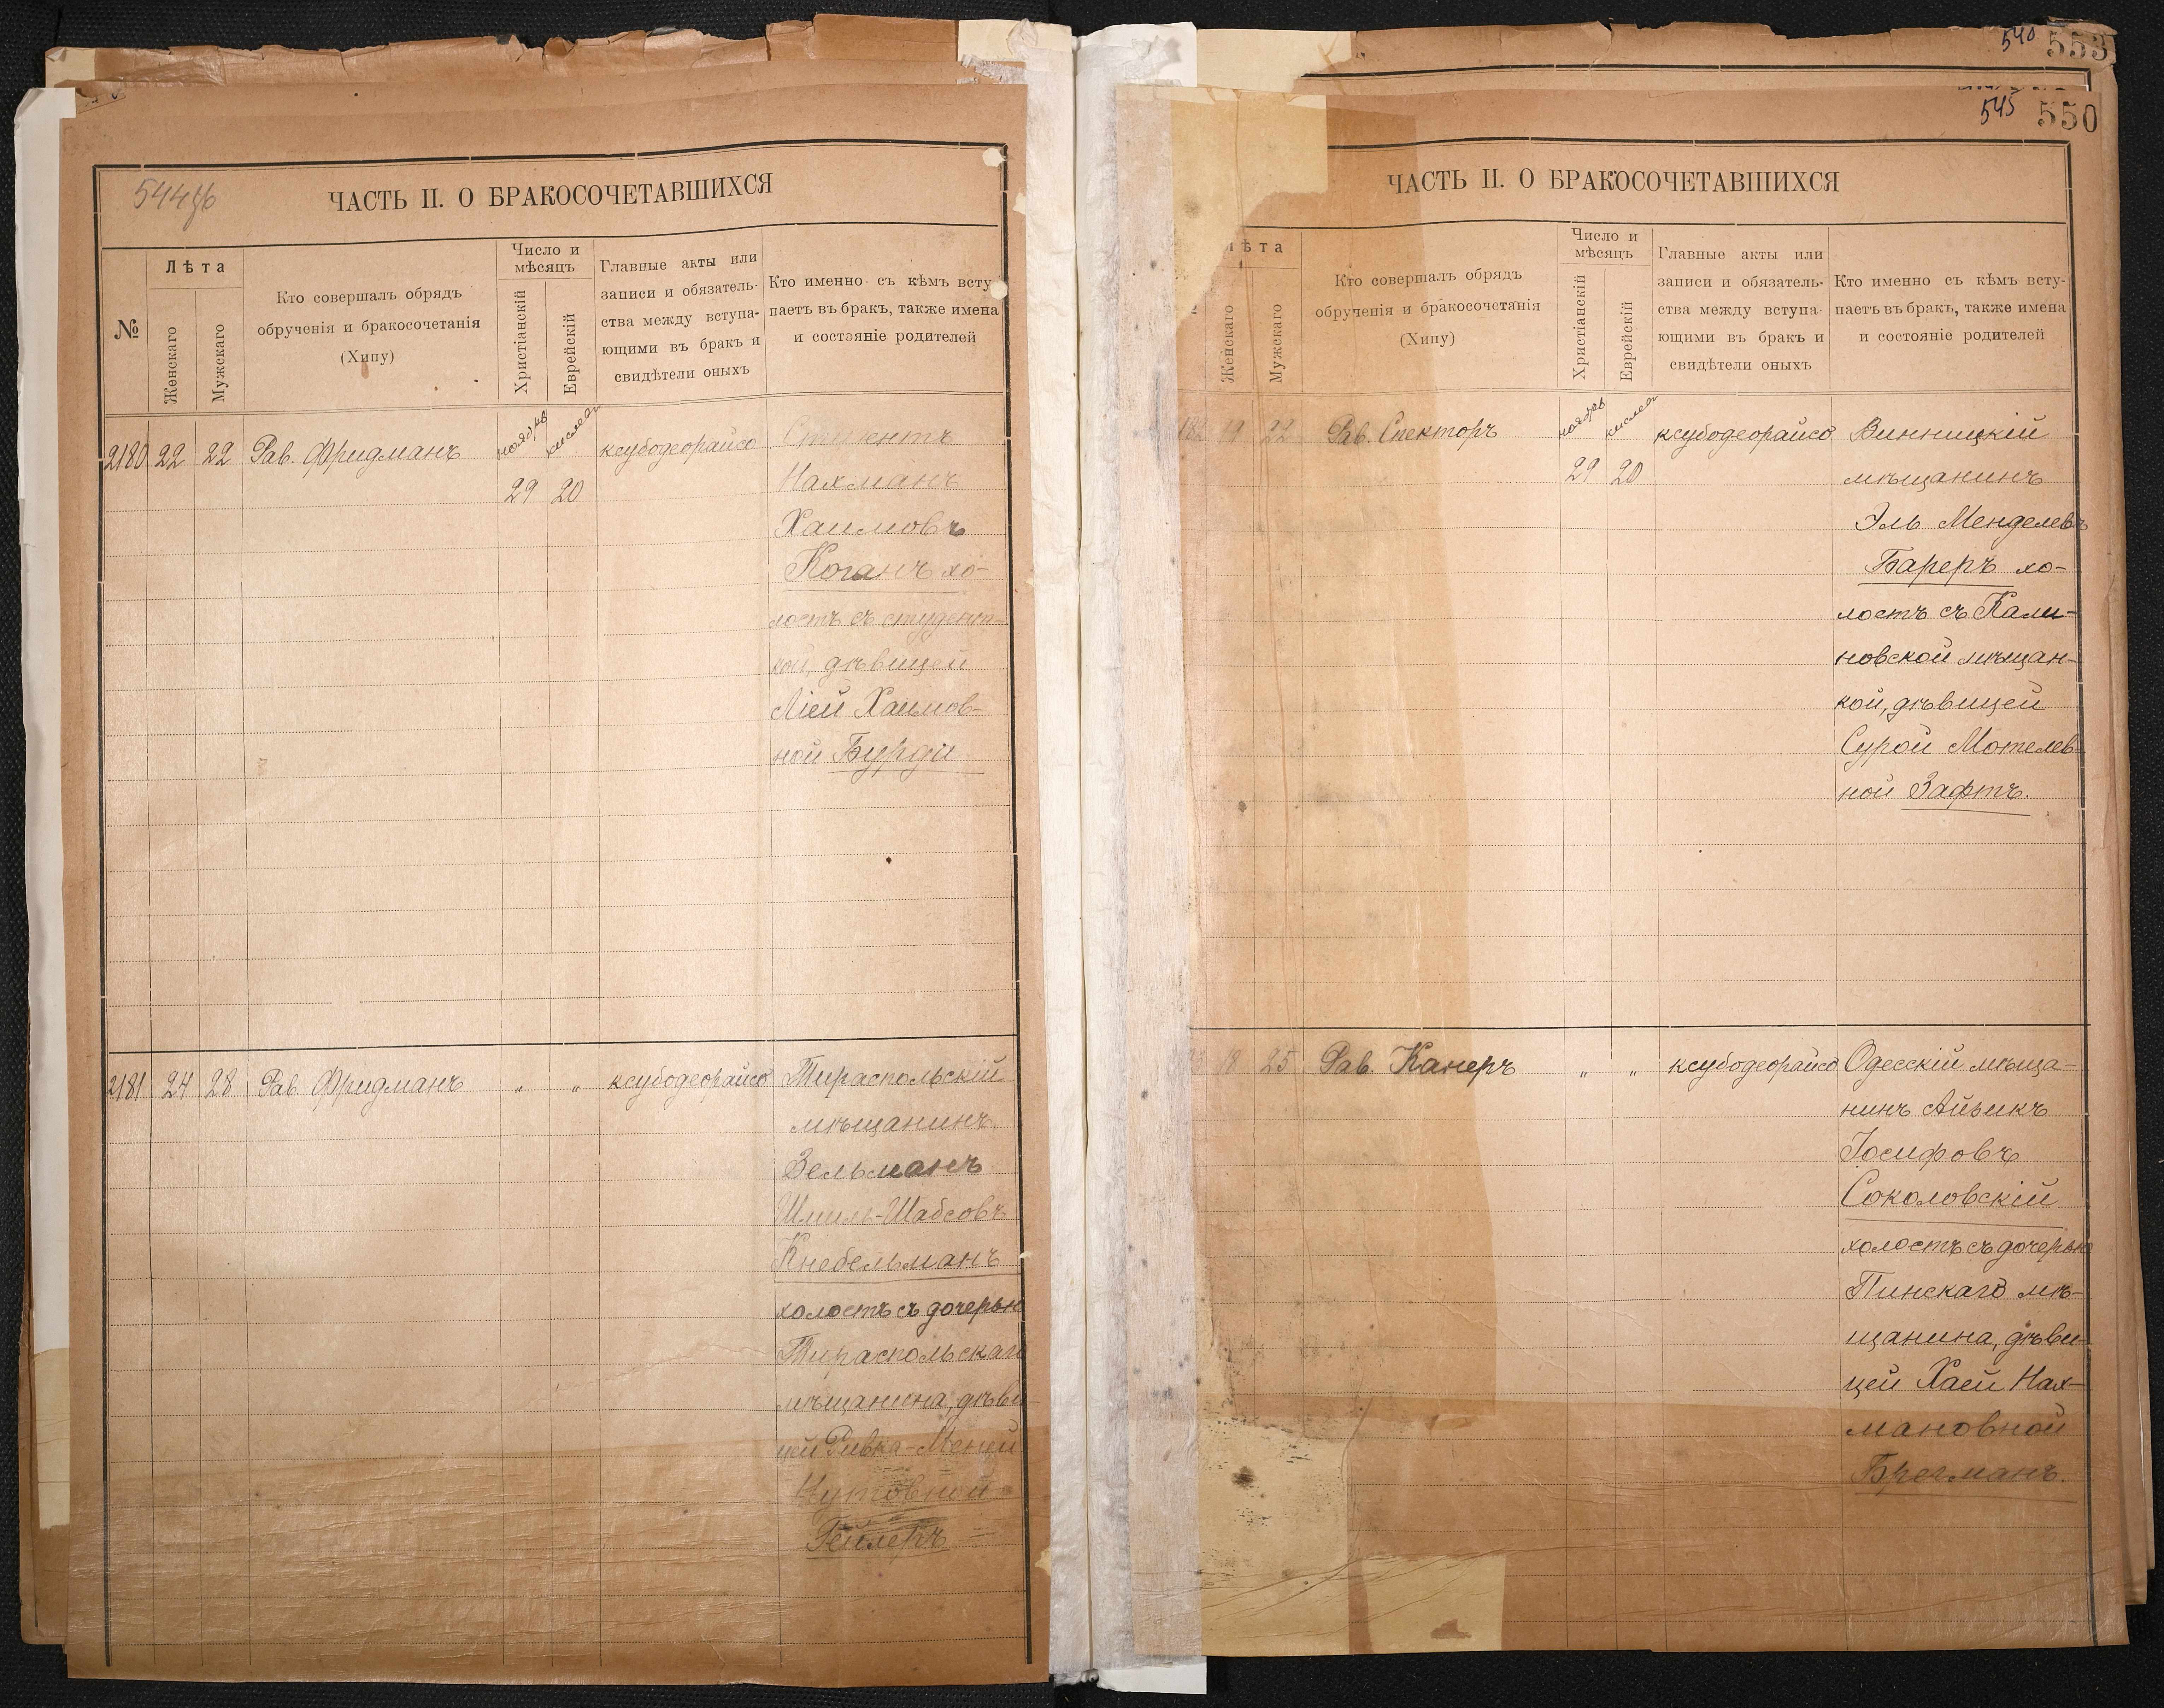 540 553
545 550
544об
ЧАСТЬ II. О БРАКОСОЧЕТАВШИХСЯ
№
Лѣта
Женскаго
Мужскаго
Кто совершалъ обрядъ
обрученія и бракосочетанія
(Хипу)
Число и
мѣсяцъ
Христіанскій
Еврейскій
Главные акты или
записи и обязатель-
ства между вступа-
ющими въ бракъ и
свидѣтели оныхъ
Кто именно съ кѣмъ всту
паетъ въ бракъ, также имена
и состояніе родителей
2180 22 22 Рав. Фридманъ ноябрь кислев ксубодеорайсо Студентъ
29 20 Нахманъ
Хаимовъ
Коганъ хо-
лостъ съ студент-
кой, дѣвицей
Ліей Хаимов-
ной Бурди
2181 24 28 Рав. Фридманъ " " ксубодеорайсо Тираспольскій
мѣщанинъ
Зельманъ
Шмиль-Шабсовъ
Кнебельманъ
холостъ съ дочерью
Тираспольскаго
мѣщанина, дѣви
цей Ривка-Менци
Гейлеръ
ЧАСТЬ II. О БРАКОСОЧЕТАВШИХСЯ
ѣта
Женскаго
Мужскаго
Кто совершалъ обрядъ
обрученія и бракосочетанія
(Хипу)
Число и
мѣсяцъ
Христіанскій
Еврейскій
Главные акты или
записи и обязатель-
ства между вступа-
ющими въ бракъ и
свидѣтели оныхъ
Кто именно съ кѣмъ всту-
паетъ въ бракъ, также имена
и состояніе родителей
182 19 22 Рав. Спекторъ ноябрь кислев ксубодеорайсо Винницкій
29 20 мѣщанинъ
Эль Менделевъ
Бареръ хо-
лостъ съ Кали-
новской мѣщан-
кой, дѣвицей
Сурой Мотелев-
ной Зафтъ.
18 25 Рав. Канеръ " " ксубодеорайсо Одесскій мѣща-
нинъ Айзикъ
Іосифовъ
Соколовскій
холостъ съ дочерью
Пинскаго мѣ-
щанина, дѣви-
цей Хаей Нах-
мановной
Брегманъ.